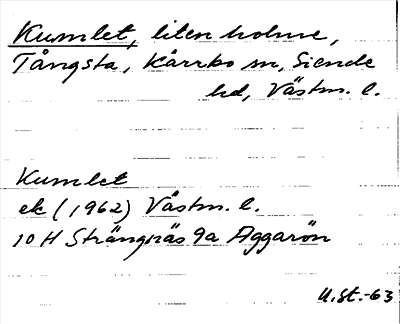 Kumlet, liten holme,
Tångsta, Kärrbo sn, Siende
hd, Västm. l.
Kumlet
ek (1962) Västm. l.
10 H Strängnäs 9a Aggarön
U.St.-63